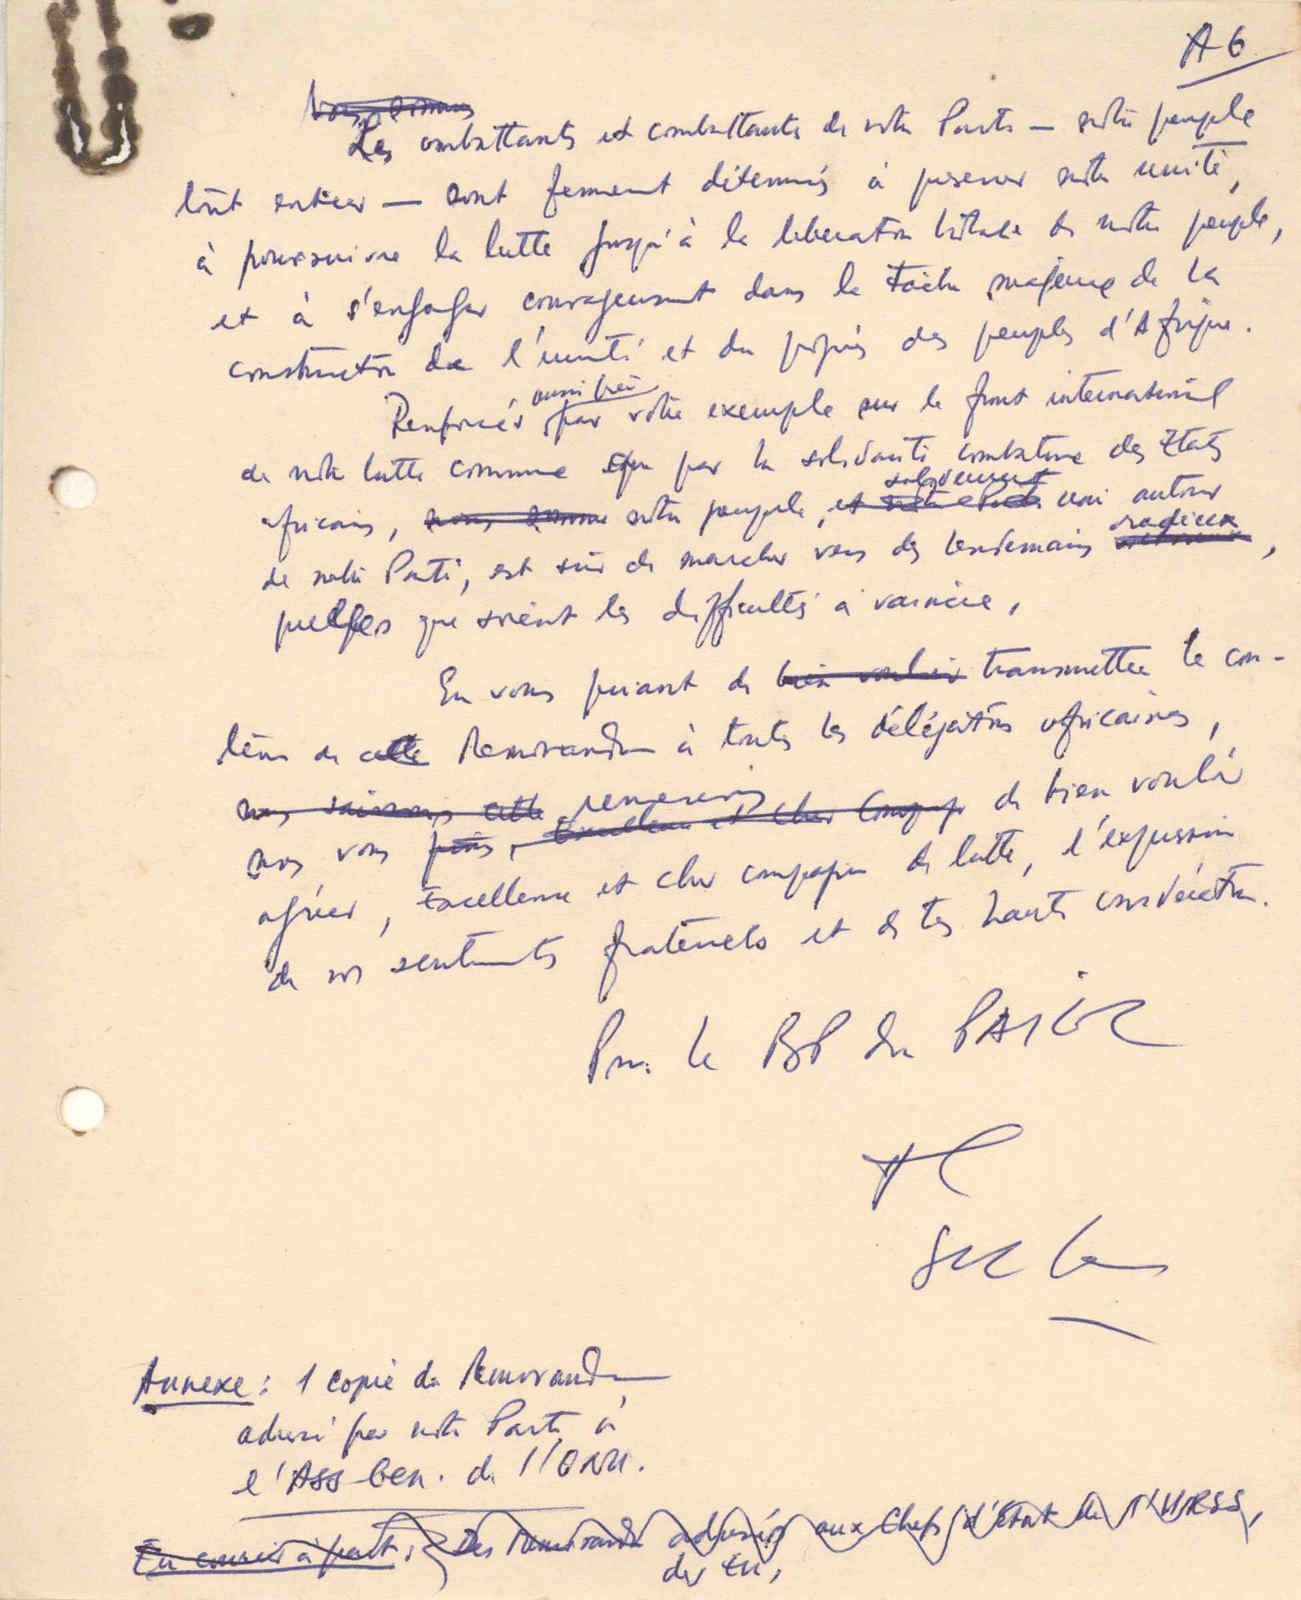 A 6
Nous sommes
Les combattants et combattantes de notre Parti — notre peuple
tout entier — sont fermement déterminés à préserver notre unité,
à poursuivre la lutte jusqu'à la libération totale de notre peuple,
et à s'engager courageusement dans la tâche majeure de la
construction de l'unité et du progrès des peuples d'Afrique.
aussi bien
Renforcés par votre exemple sur le front international
de notre lutte comme que par la solidarité combattive des Etats
solidement
africains, nous sommes notre peuple, et notre Parti uni autour
radieux
de notre Parti, est sûr de marcher vers des lendemains ,
quelles que soient les difficultés à vaincre.
En vous priant de bien vouloir transmettre le con-
tenu de cette Memorandum à toutes les délégations africaines,
nous saisissons cette remercions
nous vous prions, Excellence et cher Compag de bien vouloir
agréer, Excellence et cher compagnon de lutte, l'expression
de nos sentiments fraternels et de très haute considération.
Pour le BP du PAIGC
AC
Sec Gen
Annexe : 1 copie du Memorandum
adressé par notre Parti à
l'Ass Gen. de l'ONU.
En courrier à part : Des Memoranda adressés aux Chefs d'Etat de l'URSS,
des EU,